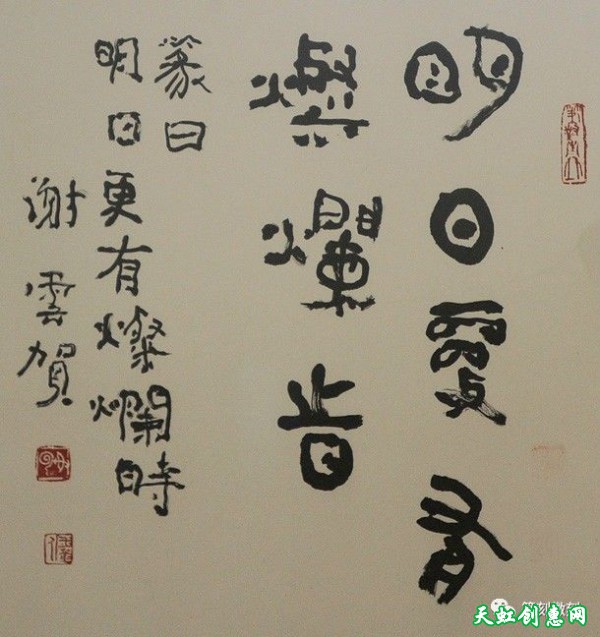 明日更有
燦爛時
篆曰
明日更有燦爛時
謝雲賀
篆刻微刊
天虹创惠网